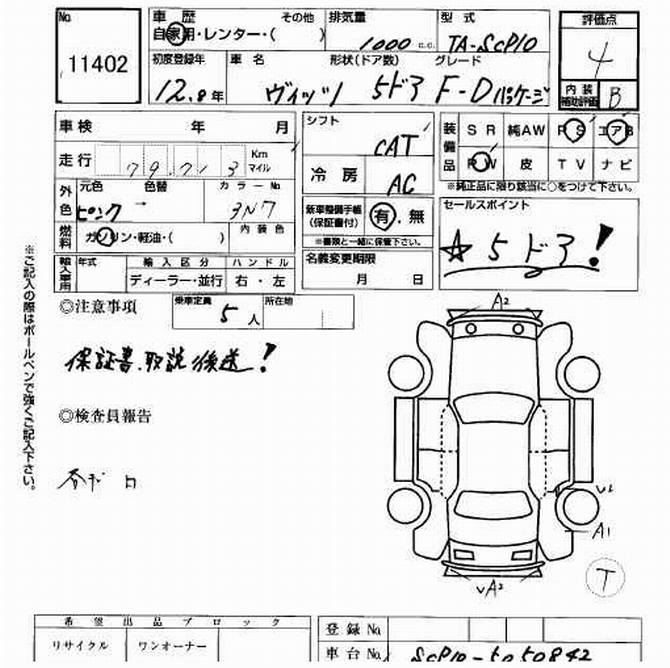 No.
11402
車歴 その他
自家用・レンター・( )
排気量
1000 c.c.
型式
TA-SCP10
評価点
4
内装
補助評価
B
初度登録年
12.8年
車名
ヴィッツ
形状(ドア数)
5ドア
グレード
F-Dパッケージ
車検 年 月
走行 79,713 Km
マイル
外色
元色 色替 カラーNo.
ピンク → 3N7
燃料
ガソリン・軽油・( )
内装色
輸入車用
年式
輸入区分
ディーラー・並行
ハンドル
右・左
シフト
CAT
冷房
AC
新車整備手帳
(保証書付)
有.無
※書類と一緒に保管下さい。
名義変更期限
月 日
装備品
SR 純AW PS エアB
PW 皮 TV ナビ
※純正品に限り該当に○をつけて下さい。
セールスポイント
☆5ドア!
◎注意事項
乗車定員
5人
所在地
保証書.取説後送!
◎検査員報告
※ご記入の際はボールペンで強くご記入下さい。
A2
A1
A2
T
希望出品ブロック
リサイクル ワンオーナー
登録No.
車台No.
SCP10-5050842